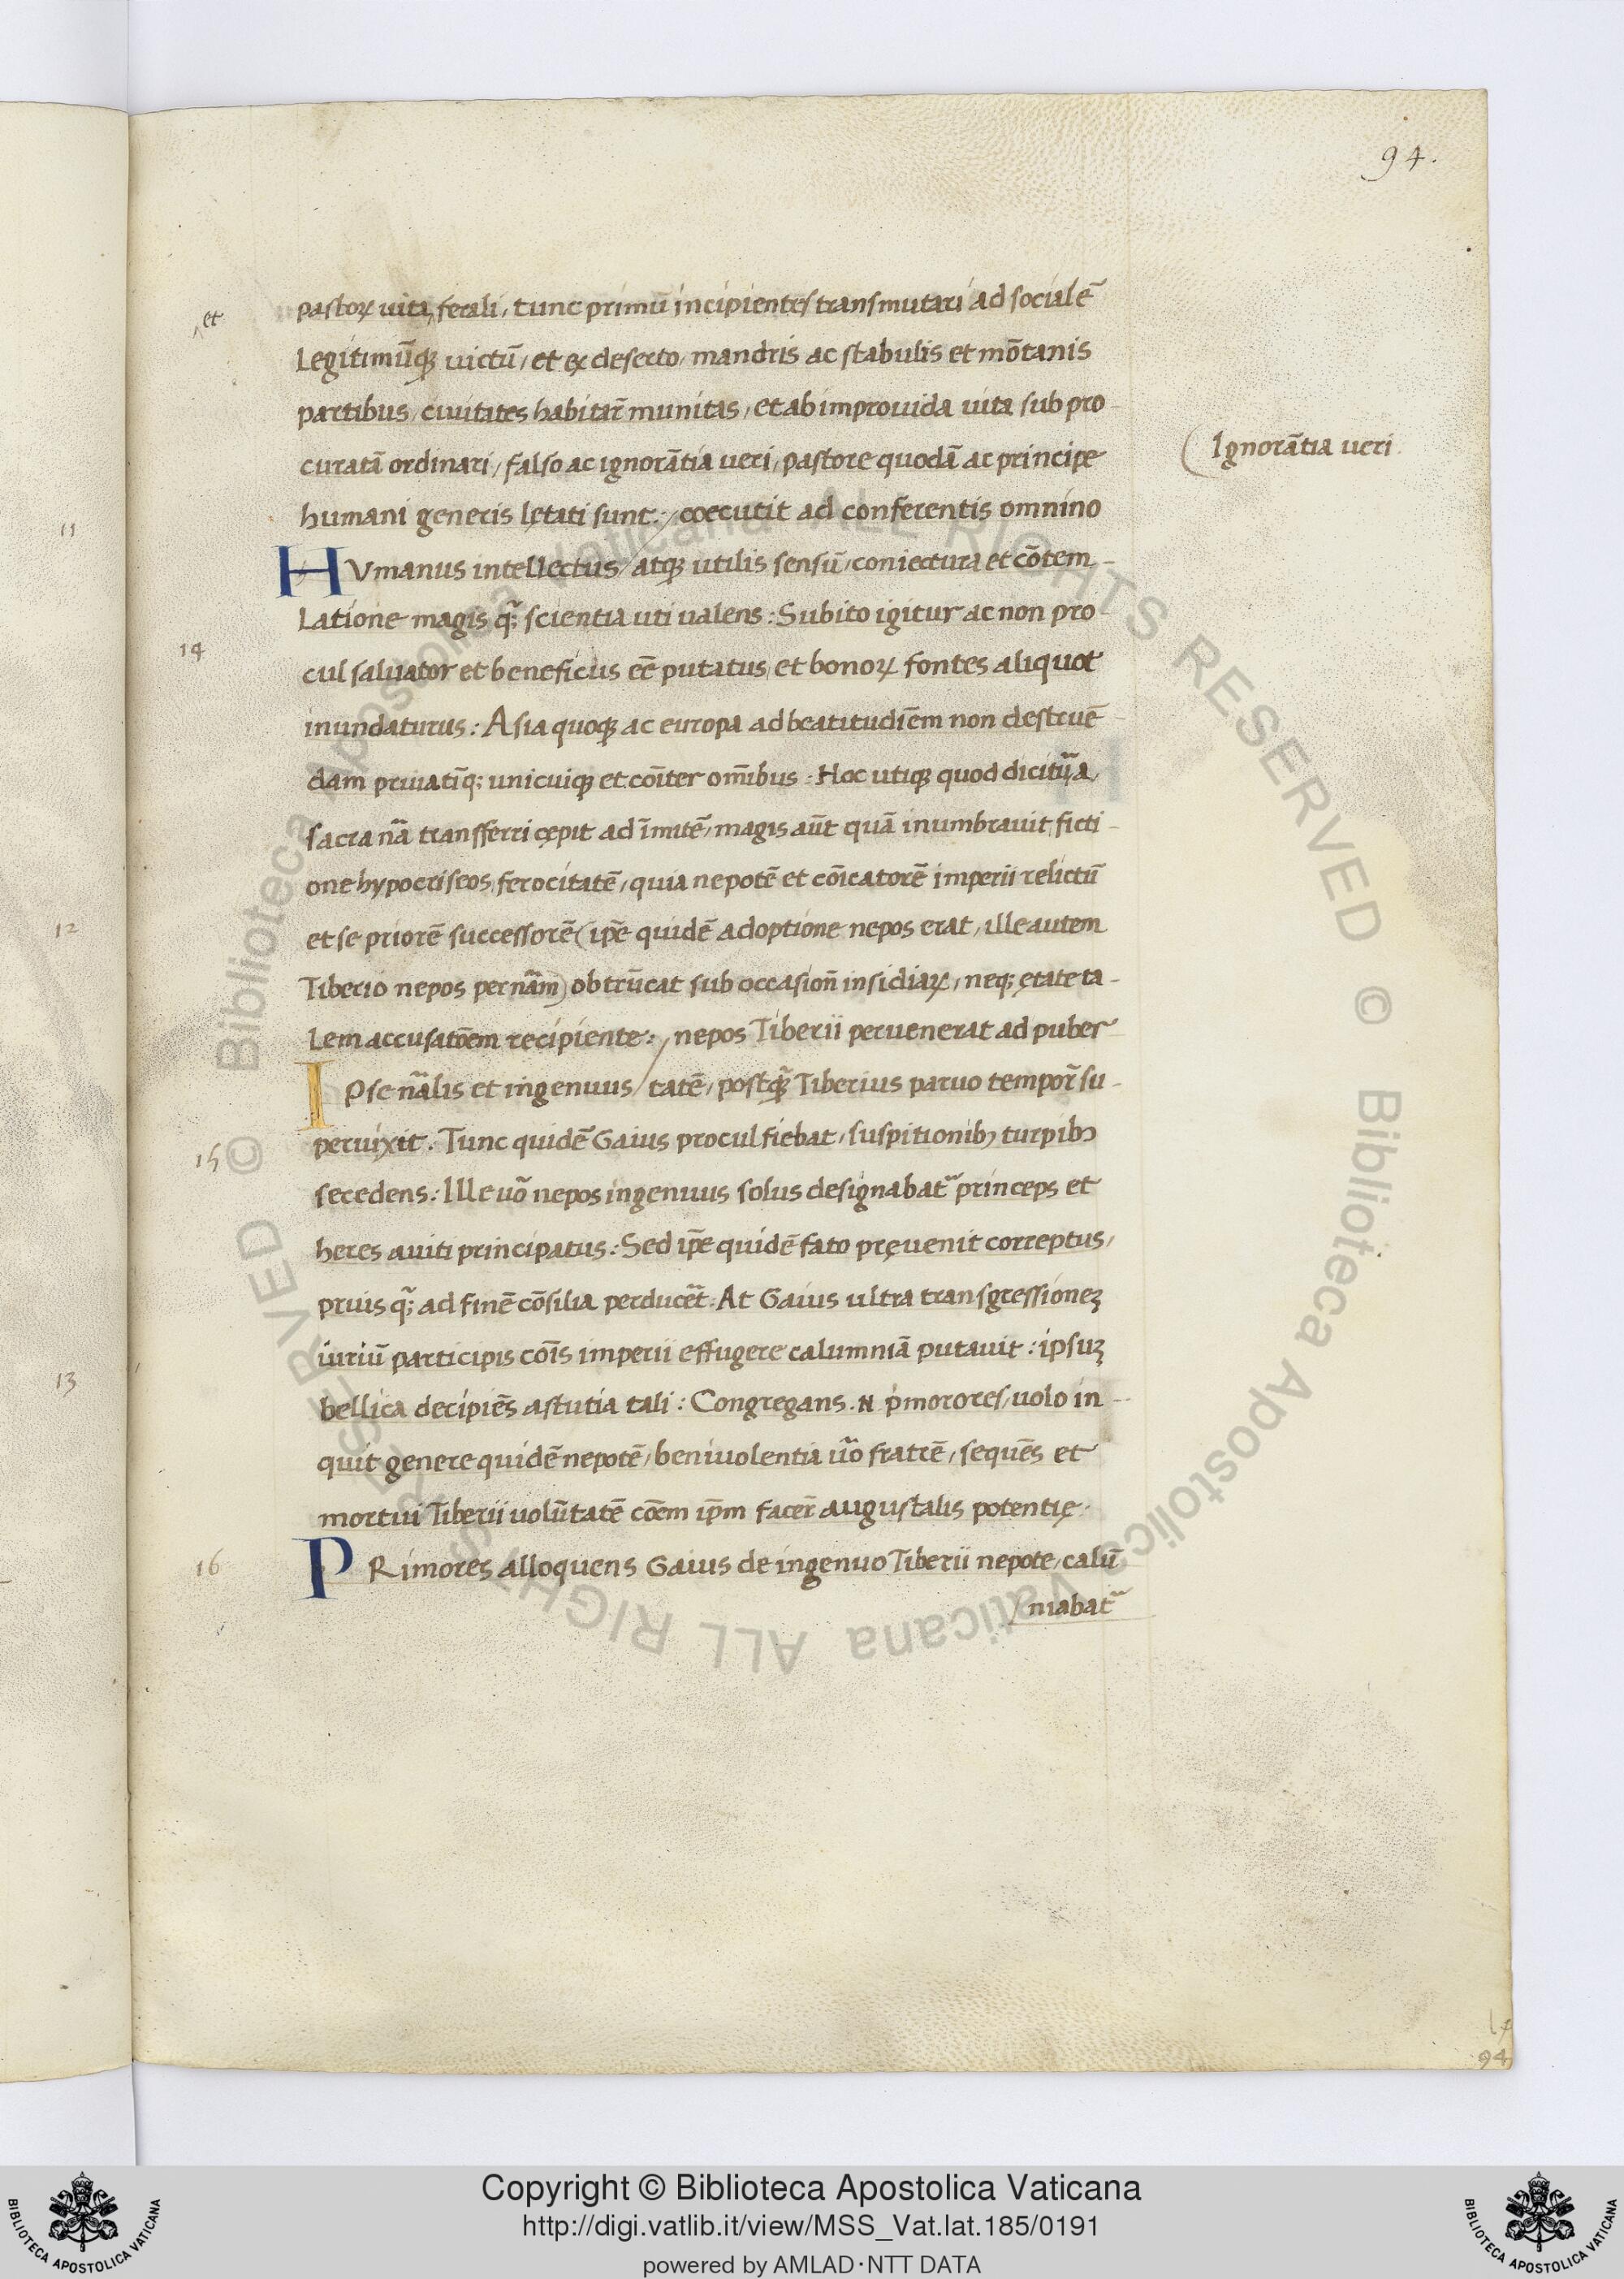 94.
et
pastoꝝ vita ferali, tunc primū incipientes transmutari ad socialē
Legitimūqꝫ victū, et ex deserto, mandris ac stabulis et mōtanis
partibus, civitates habitar̄ munitas, et ab improvida vita sub pro
curatā ordinari, falso ac ignorātia veri, pastore quodā ac principe
Ignorātia veri
humani generis lętati sunt:, coecutit ad conferentis omnino
11
HVmanus intellectus / atqꝫ utilis sensū, coniectura et cōtem
Latione magis q̄ꝫ scientia uti valens: Subito igitur ac non pro
14
cul salvator et beneficus eē putatus, et bonoꝝ fontes aliquot
inundaturus: Asia quoqꝫ ac europa ad beatitudiēm non destruē
dam privatīqꝫ unicuiqꝫ et coīter om̄ibus: Hoc utiqꝫ quod dicit̄ a,
sacra nā transfferri cępit ad īmitē, magis aūt quā inumbravit ficti
one hypocriseos, ferocitatē, quia nepotē et cōīcatorē imperii relictū
12
et se priorē successorē (ip̄e quidē adoptione nepos erat, ille autem
Tiberio nepos per nām) obtrūcat sub occasion̄ insidiaꝝ, neqꝫ ętate ta
Lem accusatōem recipiente:, nepos Tiberii pervenerat ad puber
IPse nālis et ingenuus / tatē, postqꝫ̄ Tiberius parvo tempor̄ su
pervixit. Tunc quidē Gaius procul fiebat, suspitionibꝫ turpibꝫ
15
secedens: Ille vō nepos ingenuus solus designabat̄ princeps et
heres aviti principatus: Sed ip̄e quidē fato pręvenit correptus,
prius q̄ꝫ ad finē cōsilia perducēt: At Gaius ultra transgressioneꝫ
iuriū participis coīs imperii effugere calumniā putavit: ipsuꝫ
13
bellica decipiēs astutia tali: Congregans .N. pͥmorores, volo in
quit genere quidē nepotē, benivolentia v̄o fratrē, sequēs et
mortui Tiberii volūtatē cōēm ip̄m facer̄ augustalis potentię.
16
PRimores alloquens Gaius de ingenuo Tiberii nepote, calū
/ niabat̄
94
© Biblioteca Apostolica Vaticana ALL RIGHTS RESERVED © Biblioteca Apostolica Vaticana ALL RIGHTS RESERVED
Copyright © Biblioteca Apostolica Vaticana
http://digi.vatlib.it/view/MSS_Vat.lat.185/0191
powered by AMLAD·NTT DATA
BIBLIOTECA APOSTOLICA VATICANA
BIBLIOTECA APOSTOLICA VATICANA